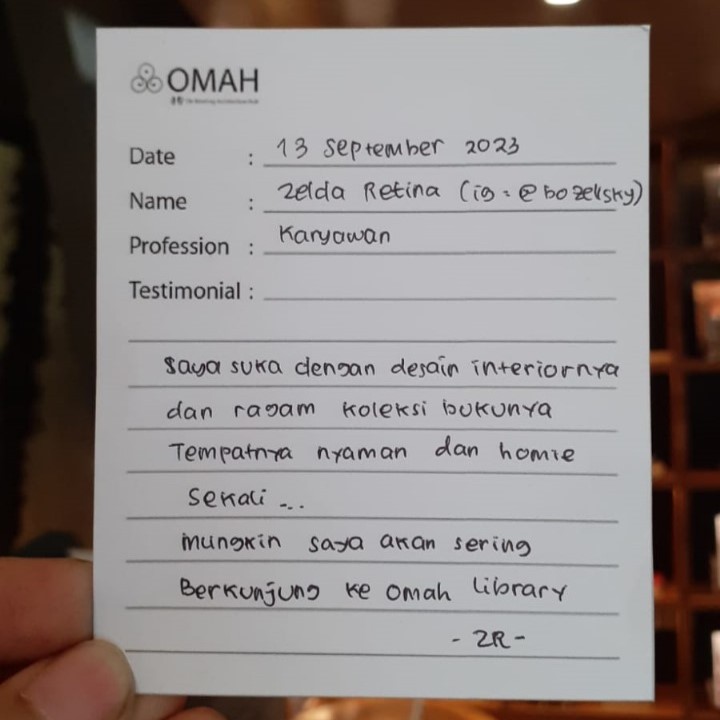 OMAH
Date : 13 September 2023
Name : Zelda Retina (ig = @bozelsky)
Profession : Karyawan
Testimonial :
Saya suka dengan desain interiornya
dan ragam koleksi bukunya
Tempatnya nyaman dan homie
Sekali ...
mungkin saya akan sering
Berkunjung ke omah library
- ZR -